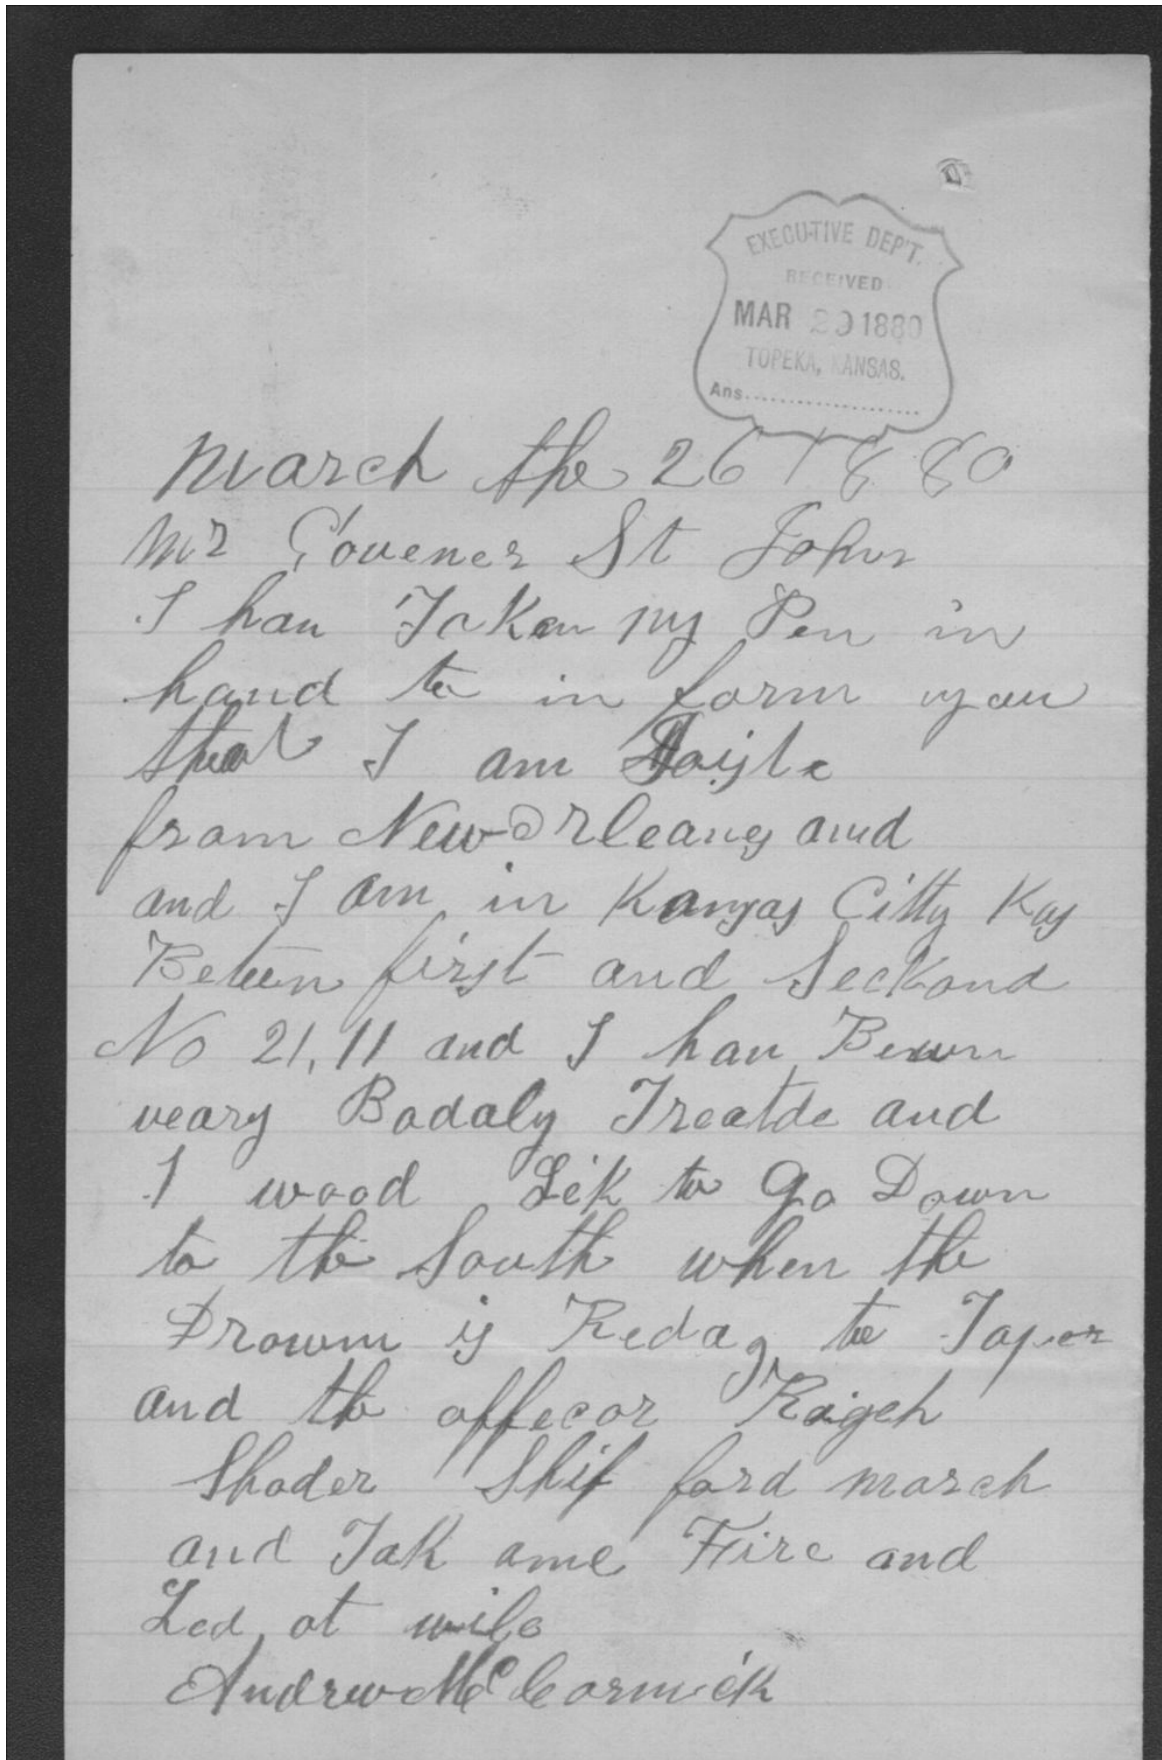 EXECUTIVE DEP'T.
RECEIVED
MAR 29 1880
TOPEKA, KANSAS.
Ans....................
March the 26 1880
Mr Govener St John
I hav Taken my Pen in
hand to in form you
that I am
from New Orleans and
and I am in Kansas Citty Kas
Beteen first and Seckond
No 21,11 and I hav Beun
veary Badaly Treatde and
I wood Lik to Go Down
to the South when the
Drowm is Reday to Taper
and the offecor
Shoder Shif ford march
and Tak ame Fire and
Led at wile
Andrew McCormick